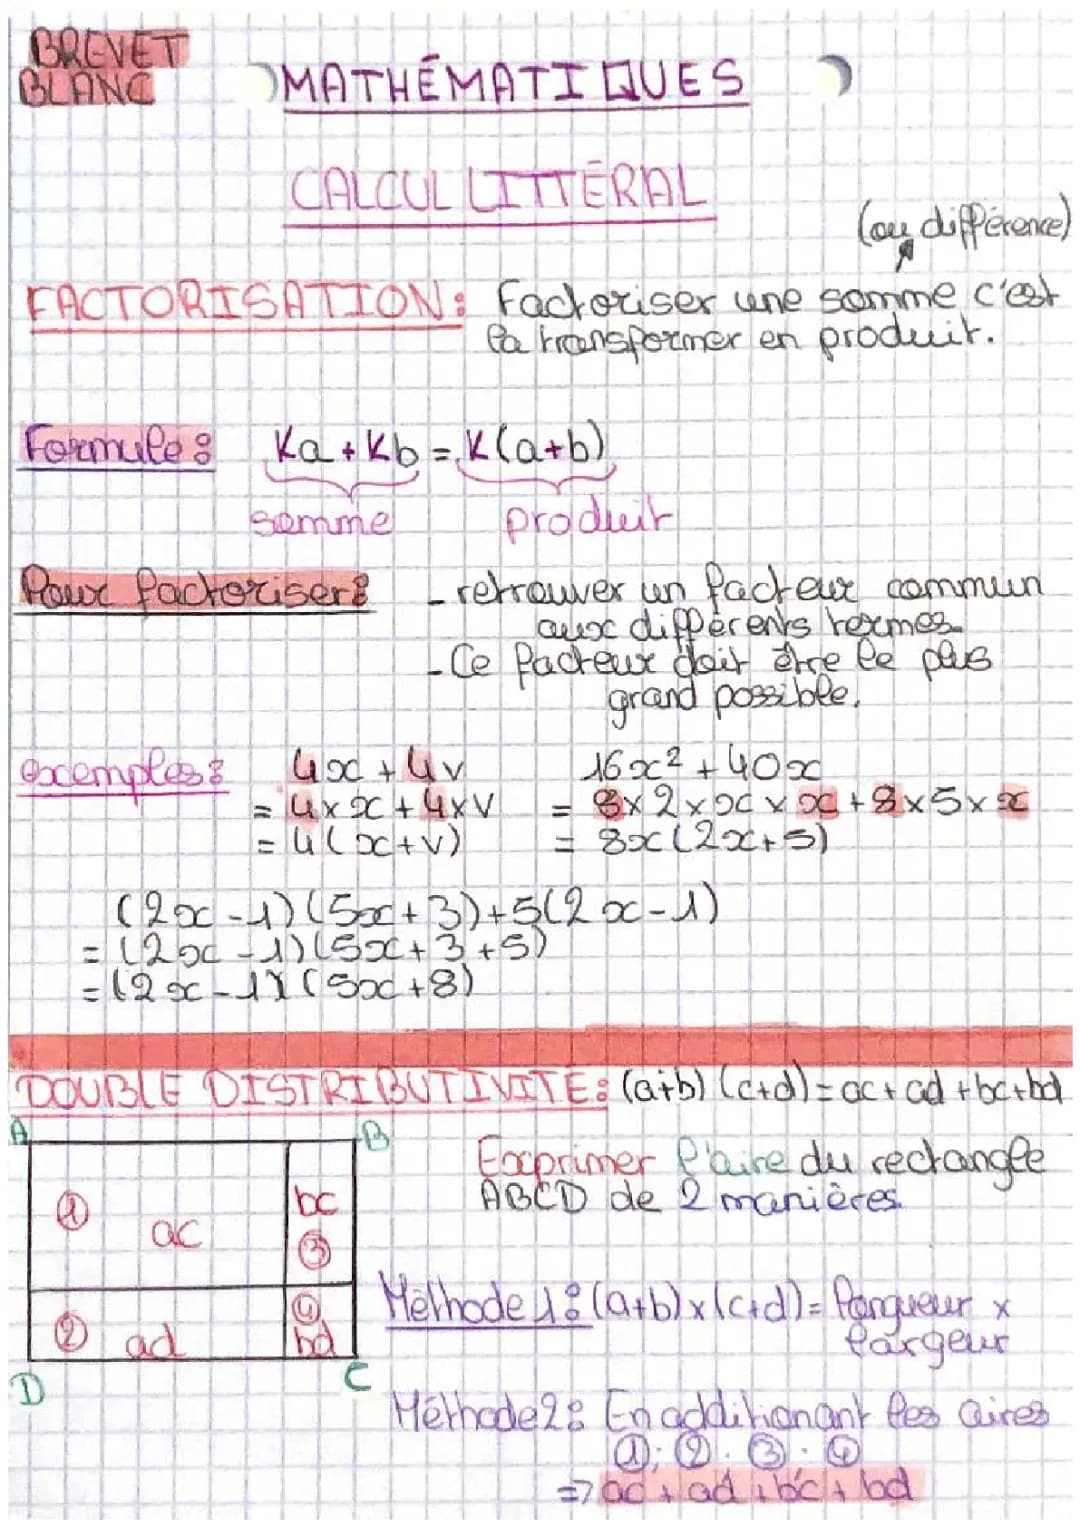 BREVET
BLANC
MATHÉMATIQUES
CALCUL LITTÉRAL
(ou différence)
FACTORISATION: Factoriser une somme c'est
la transformer en produit.
Formule: Ka + Kb = K(a+b)
somme produit
Pour factoriser: - retrouver un facteur commun
aux différents termes.
- Ce facteur doit être le plus
grand possible.
exemples: 4x + 4v 16x² + 40x
= 4 × x + 4 × v = 8 × 2 × x × x + 8 × 5 × x
= 4(x+v) = 8x(2x+5)
(2x-1)(5x+3)+5(2x-1)
= (2x-1)(5x+3+5)
= (2x-1)(5x+8)
DOUBLE DISTRIBUTIVITÉ: (a+b)(c+d) = ac + ad + bc + bd
A B
Exprimer l'aire du rectangle
ABCD de 2 manières.
① bc
ac ③
Méthode 1: (a+b)×(c+d) = longueur ×
largeur
② ad ④ bd
D C
Méthode 2: En additionant les aires
①; ②; ③; ④
=> ac + ad + bc + bd